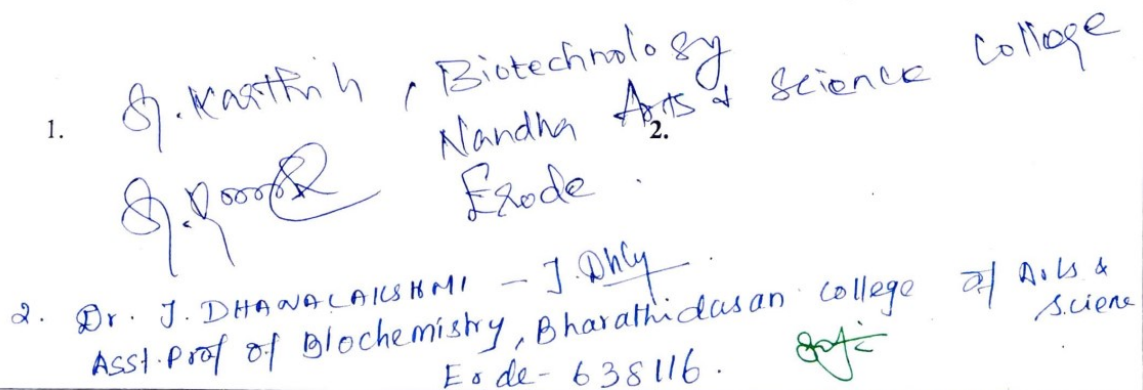 1. S. Karthik, Biotechnology
Nandha Arts & Science College
2.
Erode.
2. Dr. J. DHANALAKSHMI - J. Dhly
Asst. Prof of Biochemistry, Bharathidasan college of Arts & Sciene
Erode - 638116.